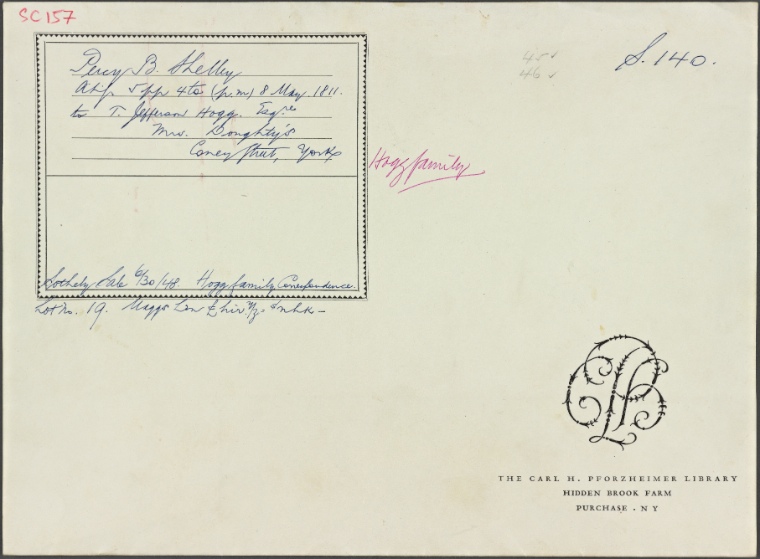 SC 157
45 ✓
46 ✓
S. 140.
Percy B. Shelley
5 pp 4to (p.m) 8 May 1811.
to T. Jefferson Hogg. Esqre
Mrs. Doughty's
Coney Street, York
Hogg family
Sotheby Sale 6/30/48 Hogg family Correspondence.
Lot No. 19. Maggs
THE CARL H. PFORZHEIMER LIBRARY
HIDDEN BROOK FARM
PURCHASE . N Y